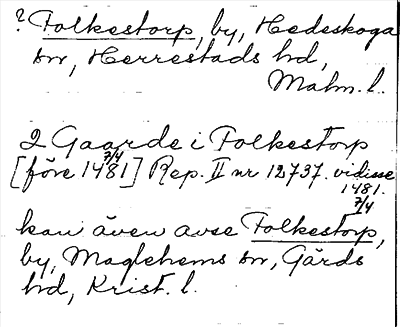 ? Folkestorp, by, Hedeskoga
sn, Herrestads hd,
Malm. l.
2 Gaarde i Folkestorp
[före 7/4 1481] Rep. II nr 12737. vidisse
1481.
7/4
kan även avse Folkestorp,
by, Maglehems sn, Gärds
hd, Krist. l.